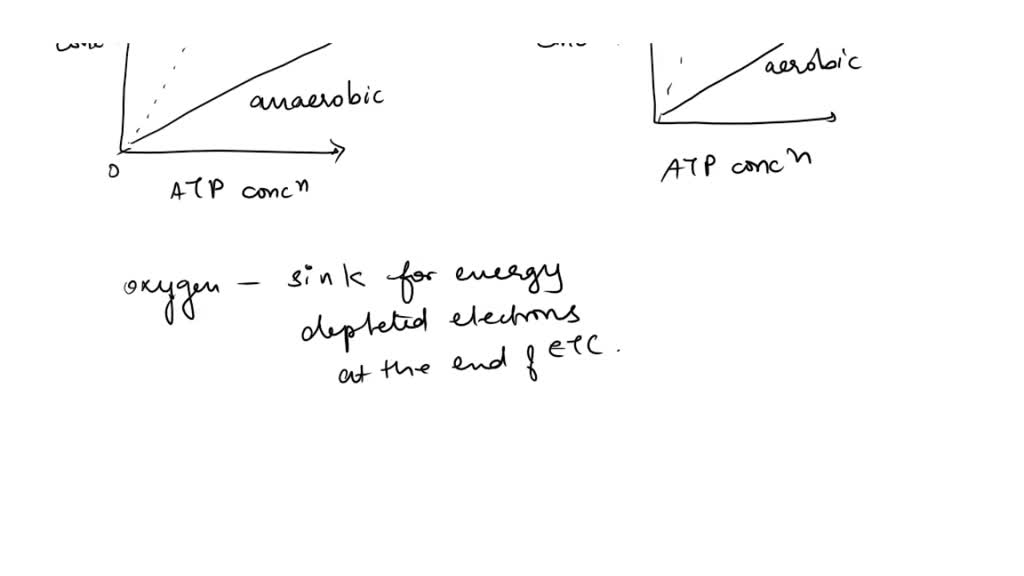 anaerobic
aerobic
0
ATP concn
ATP concn
oxygen - sink for energy
depleted electrons
at the end of ETC.